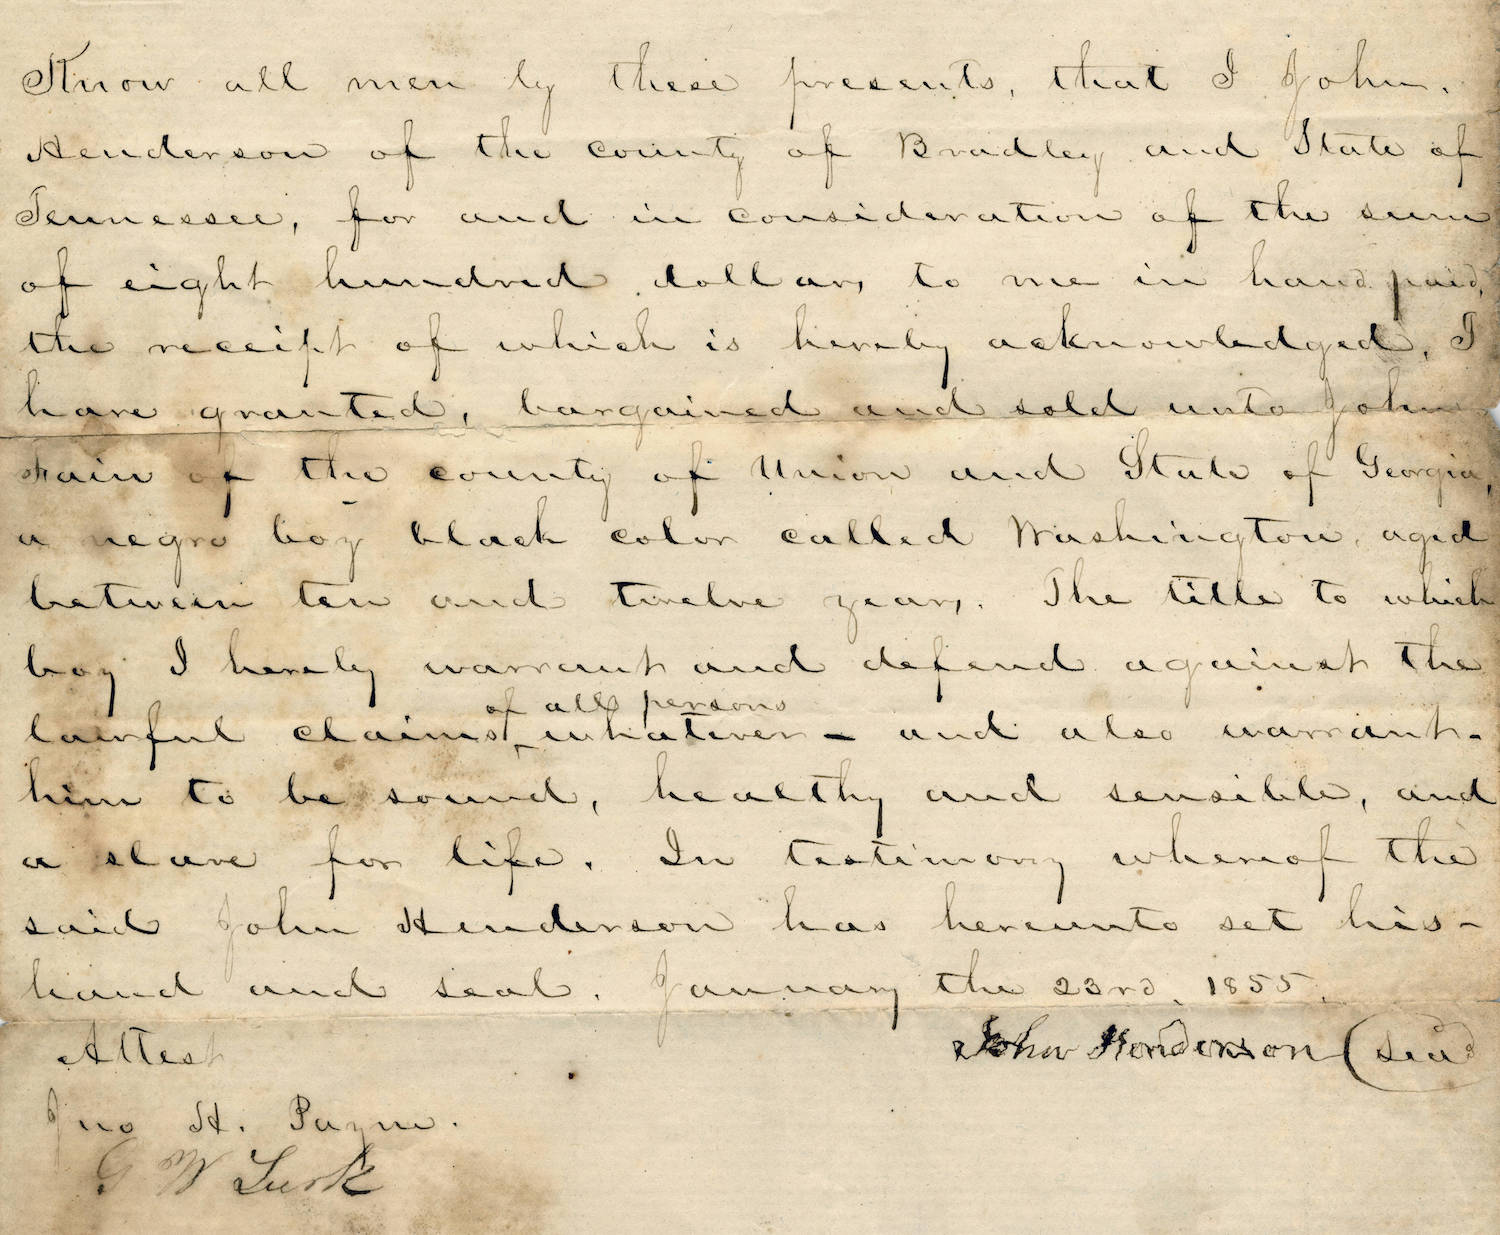 Know all men by these presents, that I John
Henderson of the county of Bradley and State of
Tennessee, for and in consideration of the sum
of eight hundred dollars, to me in hand paid,
the receipt of which is hereby acknowledged, I
have granted, bargained and sold unto John
Fain of the county of Union and State of Georgia,
a negro boy black color called Washington, aged
between ten and twelve years. The title to which
boy I hereby warrant and defend against the
of all persons
lawful claims whatever - and also warrant-
him to be sound, healthy and sensible, and
a slave for life. In testimony whereof the
said John Henderson has hereunto set his-
hand and seal. January the 23rd, 1855.
Attest
John Henderson (seal)
Jno H. Payne.
G W Lusk